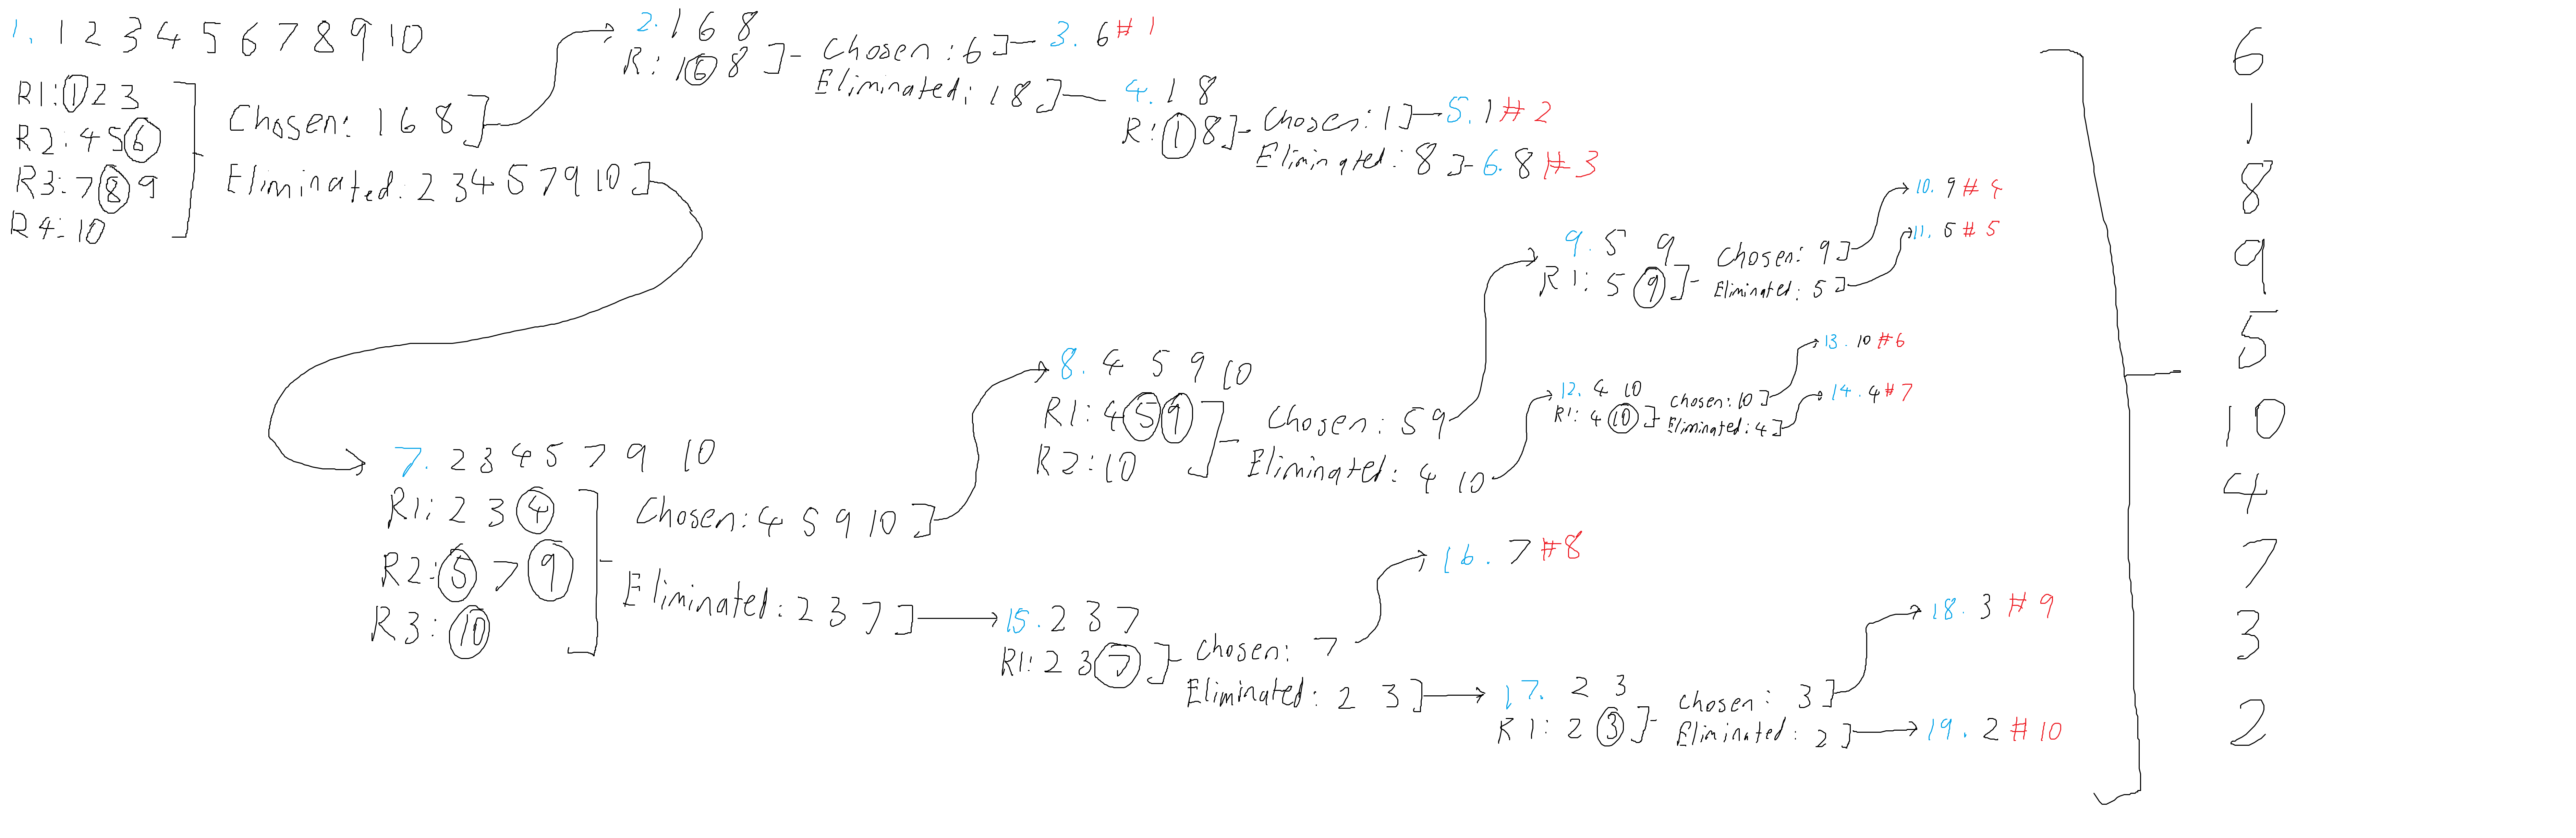 1. 1 2 3 4 5 6 7 8 9 10
R1: 1 2 3
R2: 4 5 6
R3: 7 8 9
R4: 10
Chosen: 1 6 8
Eliminated: 2 3 4 5 7 9 10
2. 1 6 8
R: 1 6 8
Chosen: 6
Eliminated: 1 8
3. 6 # 1
4. 1 8
R: 1 8
Chosen: 1
Eliminated: 8
5. 1 # 2
6. 8 # 3
7. 2 3 4 5 7 9 10
R1: 2 3 4
R2: 5 7 9
R3: 10
Chosen: 4 5 9 10
Eliminated: 2 3 7
8. 4 5 9 10
R1: 4 5 9
R2: 10
Chosen: 5 9
Eliminated: 4 10
9. 5 9
R1: 5 9
Chosen: 9
Eliminated: 5
10. 9 # 4
11. 5 # 5
12. 4 10
R1: 4 10
Chosen: 10
Eliminated: 4
13. 10 # 6
14. 4 # 7
15. 2 3 7
R1: 2 3 7
Chosen: 7
Eliminated: 2 3
16. 7 # 8
17. 2 3
R1: 2 3
Chosen: 3
Eliminated: 2
18. 3 # 9
19. 2 # 10
6
1
8
9
5
10
4
7
3
2